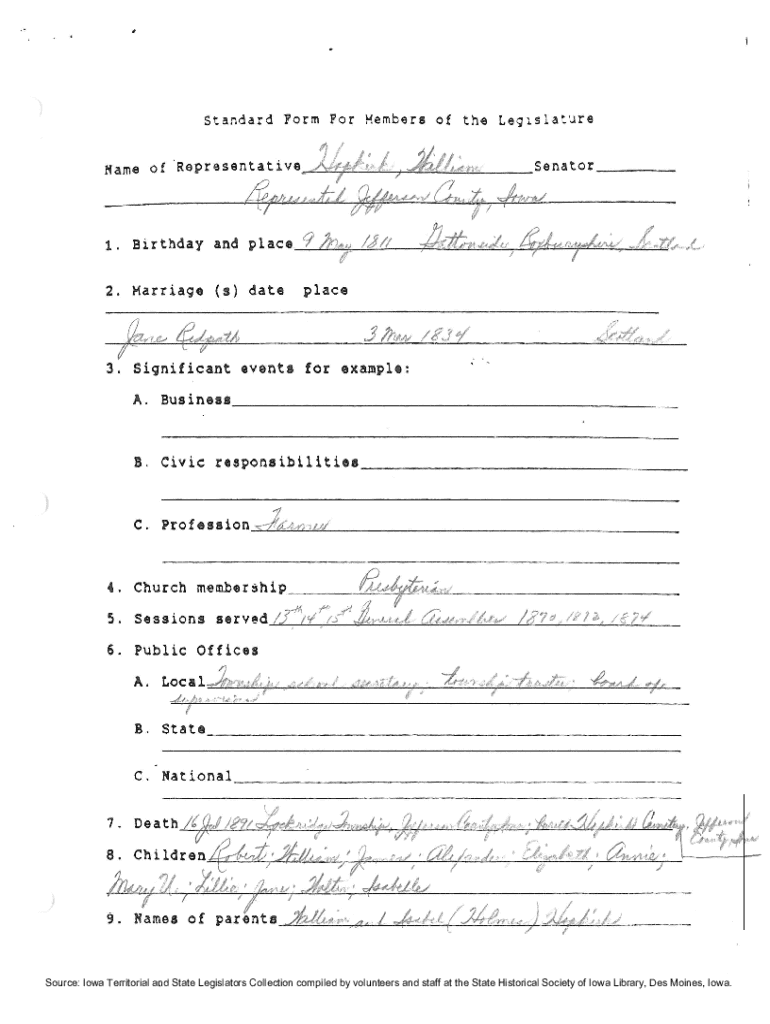 Standard Form For Members of the Legislature
Name of Representative Hopkirk, William Senator
Represented Jefferson County, Iowa
1. Birthday and place 9 May 1811 Gattonside, Roxburyshire, Scotland
2. Marriage (s) date place
Jane Redpath 3 Mar 1834 Scotland
3. Significant events for example:
A. Business
B. Civic responsibilities
C. Profession Farmer
4. Church membership Presbyterian
5. Sessions served 13th 14th 15th General Assemblies 1870, 1872, 1874
6. Public Offices
A. Local Township school secretary; township trustee; board of
supervisors
B. State
C. National
7. Death 16 Jul 1891 Lockridge Township, Jefferson County, Iowa; buried Hopkirk Cemetery, Jefferson
County, Iowa
8. Children Robert; William; James; Alexander; Elizabeth; Annie;
Mary U.; Lillie; Jane; Walter; Isabelle
9. Names of parents William and Isabel (Holmes) Hopkirk
Source: Iowa Territorial and State Legislators Collection compiled by volunteers and staff at the State Historical Society of Iowa Library, Des Moines, Iowa.